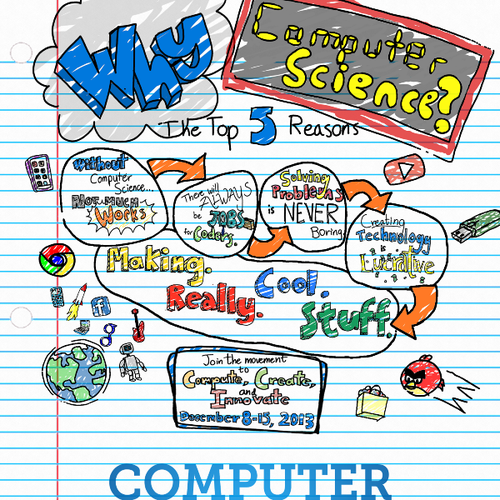 Why
Computer
Science?
The Top 5 Reasons
Without
Computer
Science...
Not Much
Works
There will
ALWAYS
be JOBS
for Coders.
Solving
Problems
is NEVER
Boring.
Creating
Technology
is
Lucrative
Making.
Really.
Cool.
Stuff.
Join the movement
to
Compute, Create,
and
Innovate
December 8-15, 2013
COMPUTER